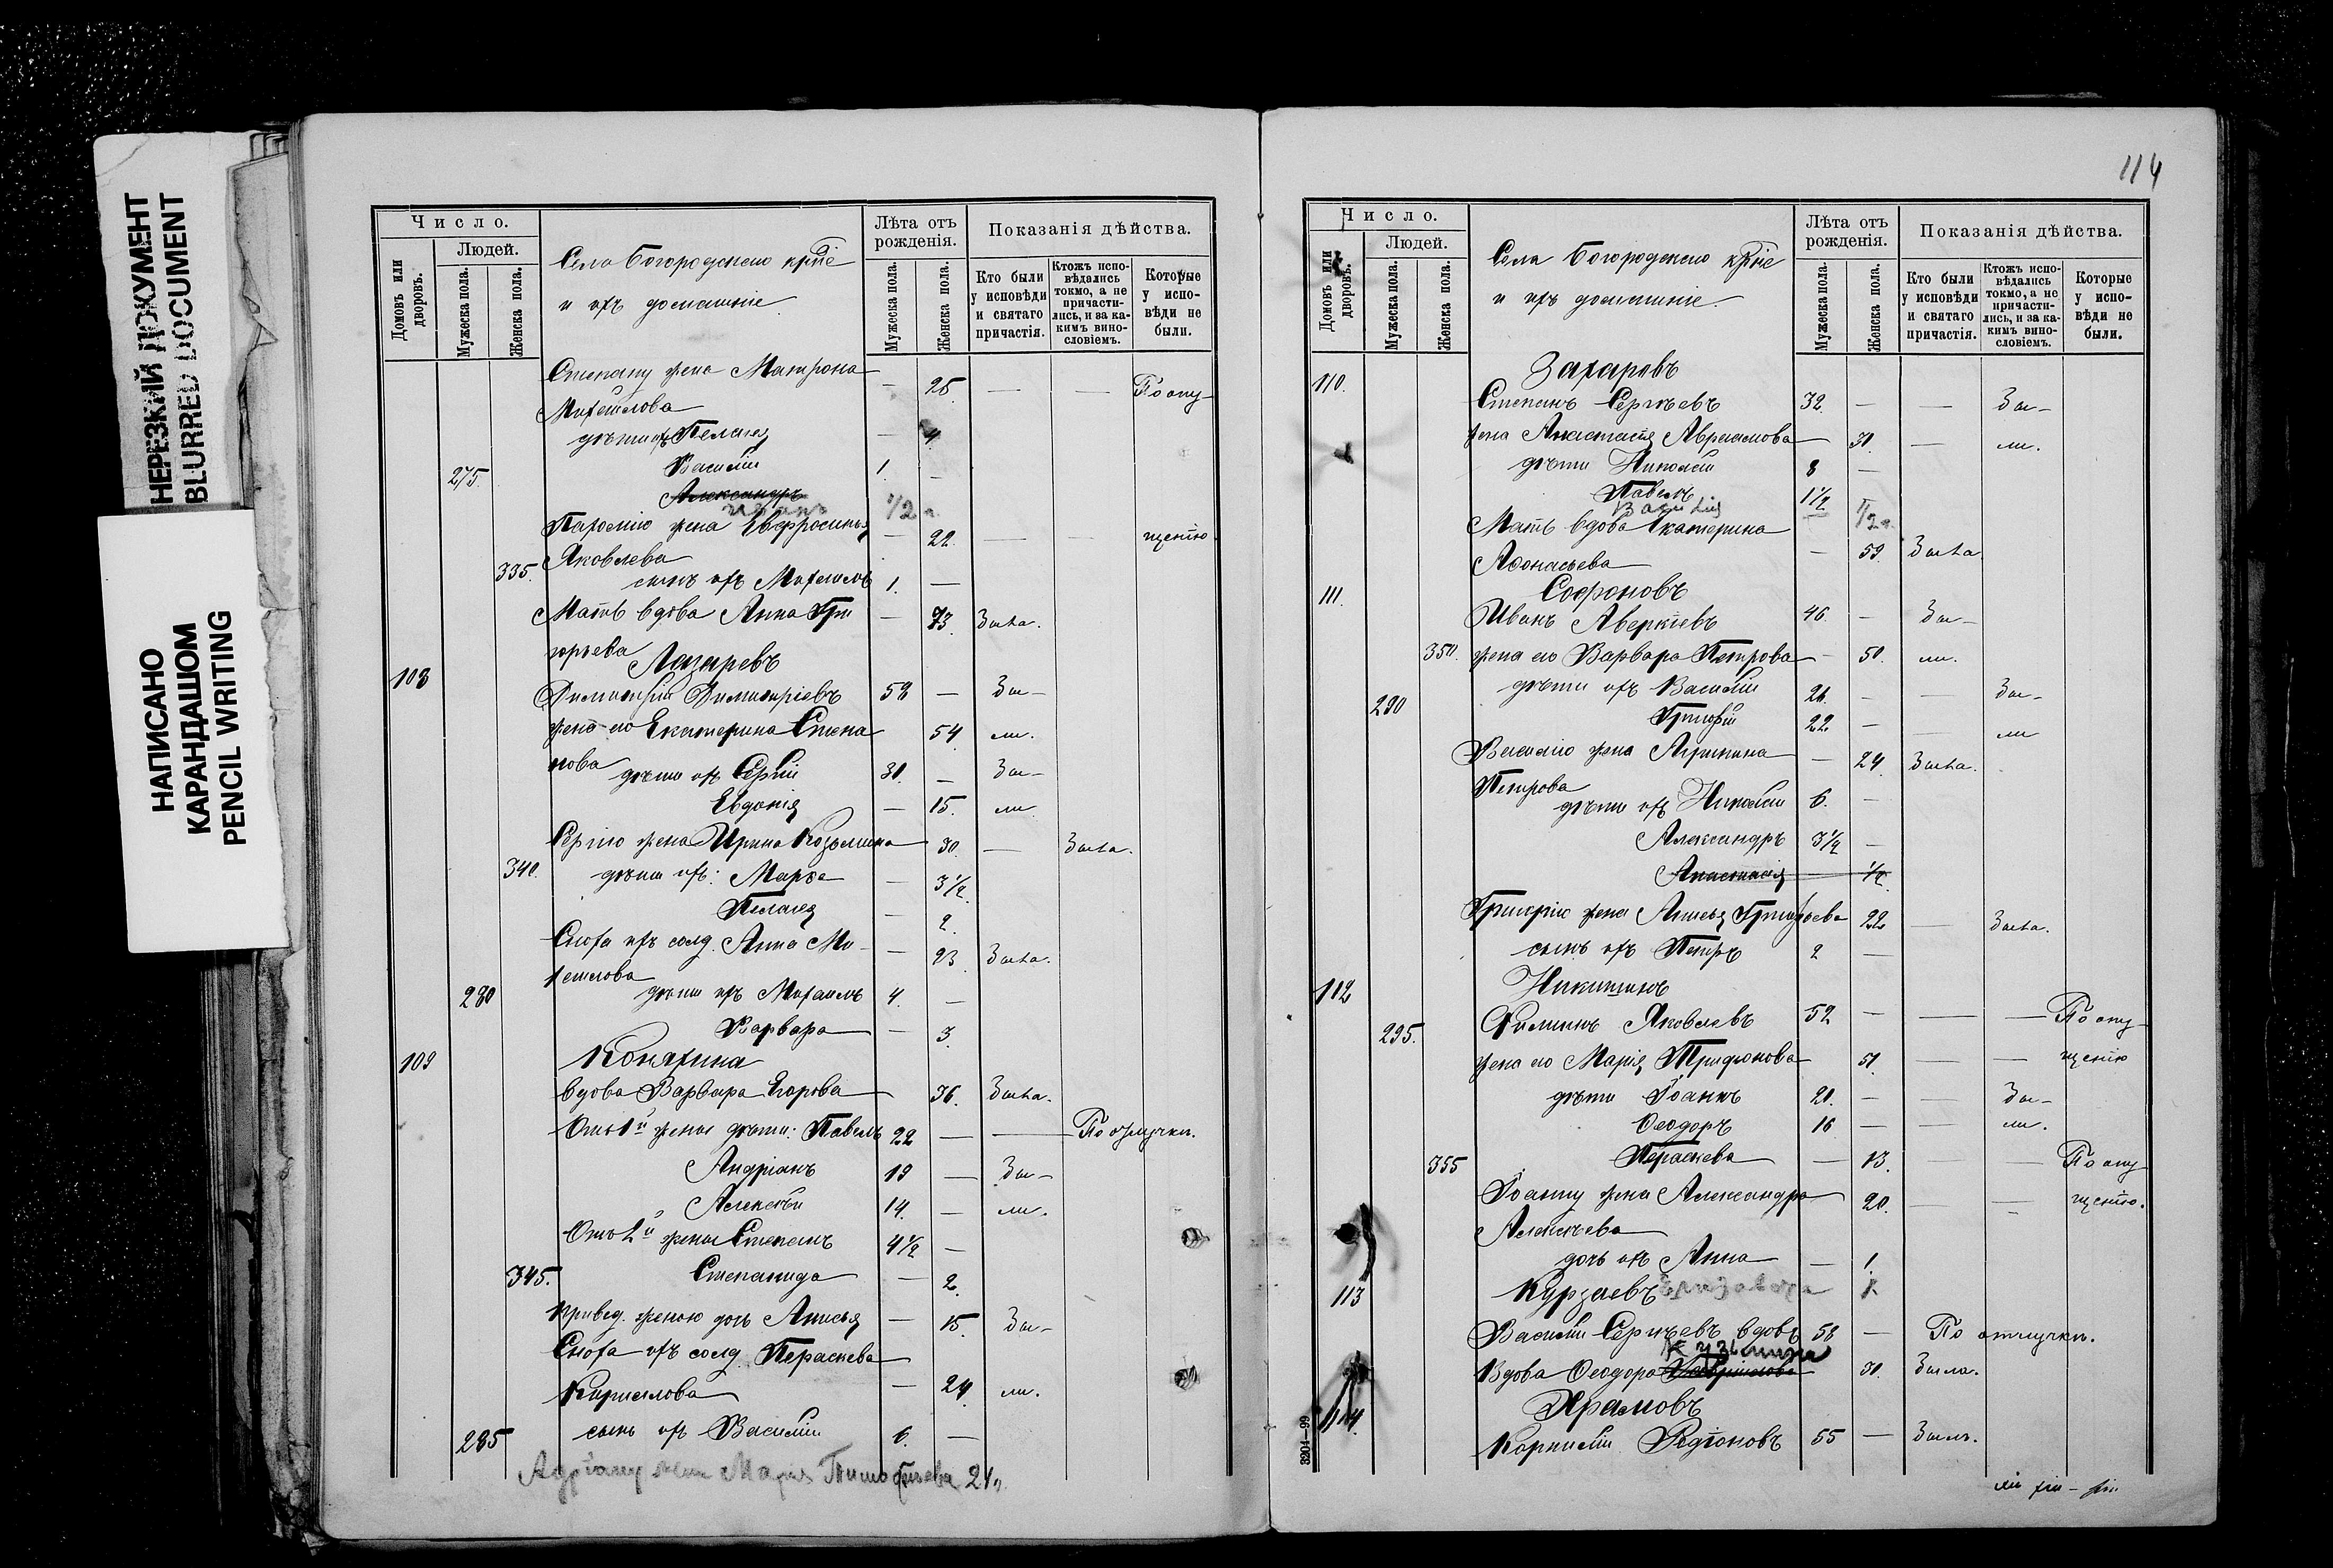 НЕРЕЗКИЙ ДОКУМЕНТ
BLURRED DOCUMENT
НАПИСАНО
КАРАНДАШОМ
PENCIL WRITING
Число.
Людей.
Домовъ или дворовъ.
Мужеска пола.
Женска пола.
Села Богородскаго
и ихъ домашніе.
Лѣта отъ
рожденія.
Мужеска пола.
Женска пола.
Показанія дѣйства.
Кто были
у исповѣди
и святаго
причастія.
Ктожъ испо-
вѣдались
токмо, а не
причасти-
лись, и за ка-
кимъ вино-
словіемъ.
Которые
у испо-
вѣди не
были.
Степану жена Матрона — 25 — — По опу-
Михаилова
дѣти ихъ Пелагея — 4
275. Василій 1. —
Александръ
Иванъ 1/2
жена Евфросинья — 22. — — щенію
335. Яковлева
сынъ ихъ Михаилъ 1. —
Мать вдова Анна Гри — 73. Была.
горьева
108 Лазаревъ
Димитрій Димитріевъ 58 — Бы-
жена его Екатерина Степа 54 ли.
нова
дѣти ихъ Сергій 30. — Бы-
Евдокія — 15. ли
Сергію жена Ирина Козьмина 30. — Была.
340. дѣти ихъ: Марѳа — 3 1/2
Пелагея — 2.
Сноха ихъ солд. Анна Ми- — 23 Была.
хаилова
280 дѣти ихъ Михаилъ 4. —
Варвара — 3.
109 Конахина
вдова Варвара Егорова 36. Была.
Отъ 1й жены дѣти: Павелъ 22 — — По отлучкѣ.
Андріанъ 19 — Бы-
Алексѣй 14. — ли.
Отъ 2й жены Степанъ 4 1/2 —
345. Степанида — 2.
Привед. женою дочь Анисья — 15. Бы-
Сноха ихъ солд. Параскева
Кирилова — 24. ли.
285 сынъ ихъ Василій 6. —
Адріану жена Марія Тимоѳеева 21
114
Число.
Людей.
Домовъ или дворовъ.
Мужеска пола.
Женска пола.
Села Богородскаго
и ихъ домашніе.
Лѣта отъ
рожденія.
Мужеска пола.
Женска пола.
Показанія дѣйства.
Кто были
у исповѣди
и святаго
причастія.
Ктожъ испо-
вѣдались
токмо, а не
причасти-
лись, и за ка-
кимъ вино-
словіемъ.
Которые
у испо-
вѣди не
были.
110. Захаровъ
Степанъ Сергѣевъ 32. — — Бы-
жена Анастасія Авраамова 31. — ли.
дѣти Николай 8 —
Павелъ 1 1/2
Василій 1/2
Мать вдова Екатерина — 59. Была
Аѳонасьева
111. Софроновъ
Иванъ Аверкіевъ 46. — Бы-
350. жена его Варвара Петрова — 50. ли.
дѣти ихъ Василій 26. — — Бы-
290 Григорій 22. — — ли
Василію жена Агрипина — 24. Была.
Петрова
дѣти ихъ Николай 6. —
Александръ 3 1/2 —
Анастасія — 1/2
Григорію жена Анисья Григорьева 22 — Была.
сынъ ихъ Петръ 2 —
112 Никишинъ
295. Филиппъ Яковлевъ 52 — — — По опу-
жена его Марія Трифонова 51. — — щенію
дѣти Іоаннъ 20. — — Бы-
Ѳеодоръ 16 — — ли.
355 Параскева — 13. — По опу-
Іоанну жена Александра 20. — — щенію.
Алексѣева
дочь ихъ Анна — 1.
113 Курзаевъ Елизавета
Василій Сергѣевъ вдовъ 58 — По отлучкѣ.
Кузьмина
Вдова Ѳеодора 31. Была.
114. Храмовъ
Корнилій Родіоновъ 55 — Былъ.
3204—99